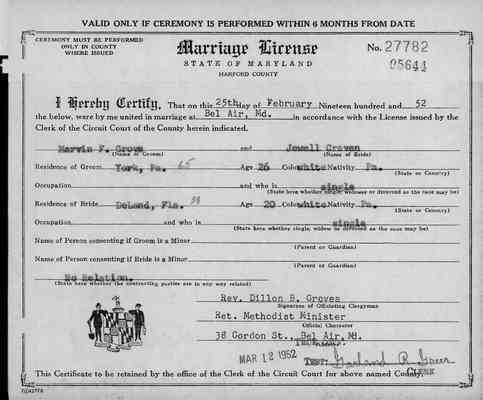 VALID ONLY IF CEREMONY IS PERFORMED WITHIN 6 MONTHS FROM DATE
CEREMONY MUST BE PERFORMED
ONLY IN COUNTY
WHERE ISSUED
Marriage License
No. 27782
STATE OF MARYLAND
05644
HARFORD COUNTY
I Hereby Certify, That on this 25th day of February Nineteen hundred and 52
the below, were by me united in marriage at Bel Air, Md. in accordance with the License issued by the
Clerk of the Circuit Court of the County herein indicated.
Marvin F. Grove and Jewell Craven
(Name of Groom) (Name of Bride)
Residence of Groom York, Pa. 65 Age 26 Color white Nativity Pa.
(State or County)
Occupation and who is single
(State here whether single, widower or divorced as the case may be)
Residence of Bride DeLand, Fla. Age 20 Color white Nativity Pa.
(State or County)
Occupation and who is single
(State here whether single, widow or divorced as the case may be)
Name of Person consenting if Groom is a Minor
(Parent or Guardian)
Name of Person consenting if Bride is a Minor
(Parent or Guardian)
No Relation.
(State here whether the contracting parties are in any way related)
Rev. Dillon B. Groves
Signature of Officiating Clergyman
Ret. Methodist Minister
Official Character
38 Gordon St., Bel Air, Md.
MAR 12 1952
TEST: Garland R Greer
CLERK
This Certificate to be retained by the office of the Clerk of the Circuit Court for above named County.